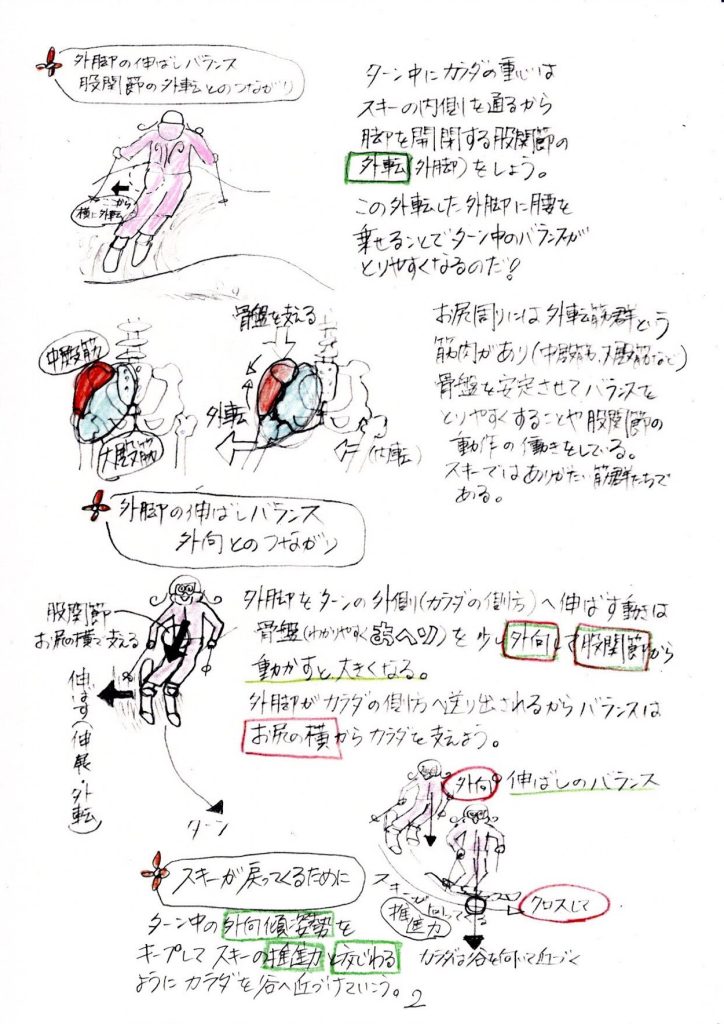 外脚の伸ばしバランス
股関節の外転とのつながり
ターン中にカラダの重心は
スキーの内側を通るから
脚を開閉する股関節の
外転(外脚)をしよう。
この外転した外脚に腰を
乗せることでターン中のバランスが
とりやすくなるのだ!
ここから
横に外転
骨盤を支える
中殿筋
外転
大殿筋
(外転)
お尻周りには外転筋群という
筋肉があり(中殿筋、大殿筋など)
骨盤を安定させてバランスを
とりやすくすることや股関節の
動作の働きをしている。
スキーではありがたい筋群たちで
ある。
外脚の伸ばしバランス
外向とのつながり
股関節
お尻の横で支える
伸ばす(伸展・外転)
ターン
外脚をターンの外側(カラダの側方)へ伸ばす動きは
骨盤(わかりやすくおヘソ)を少し外向す股関節から
動かすと大きくなる。
外脚がカラダの側方へ送り出されるからバランスは
お尻の横からカラダを支えよう。
外向 伸ばしのバランス
スキーが向いてる
推進力
クロスして
カラダは谷を向いて近づく
スキーが戻ってくるために
ターン中の外向傾姿勢を
キープしてスキーの推進力と交じわる
ようにカラダを谷へ近づけていこう。
2